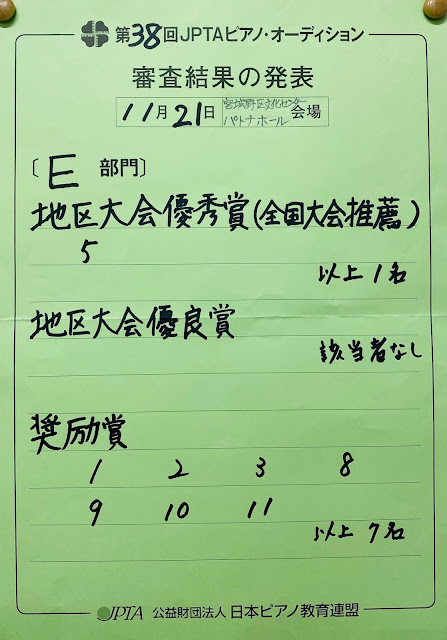 第38回JPTAピアノ・オーディション
審査結果の発表
11月21日 宮城野区文化センター パトナホール 会場
〔E 部門〕
地区大会優秀賞(全国大会推薦)
5
以上1名
地区大会優良賞
該当者なし
奨励賞
1 2 3 8
9 10 11
以上 7名
JPTA 公益財団法人 日本ピアノ教育連盟